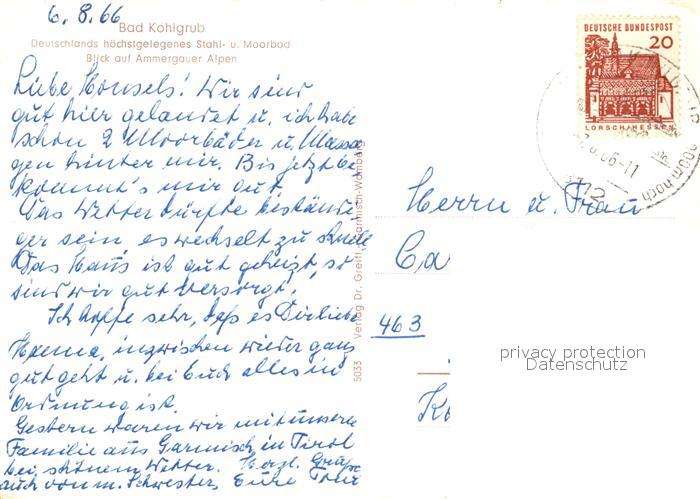 6.8.66
Bad Kohlgrub
Deutschlands höchstgelegenes Stahl- u. Moorbad
Blick auf Ammergauer Alpen
Liebe Housels! Wir sind
gut hier gelandet u. ich habe
schon 2 Moorbäder u. Massa
gen hinter mir. Bis jetzt be
kommt's mir gut.
Das Wetter dürfte bestände-
ger sein, es wechselt zu schnell
Das Haus ist gut geheizt, so
sind wir gut versorgt.
Ich hoffe sehr, daß es Dir liebe
inzwischen wieder ganz
gut geht u. bei Euch alles in
Ordnung ist.
Gestern waren wir mit unserer
Familie aus Garmisch in Tirol
bei schönem Wetter. Herzl. Grüße
auch von m. Schwester, Eure
5033 Verlag Dr. Greifl, Garmisch-Wamberg
DEUTSCHE BUNDESPOST
20
LORSCH/HESSEN
66-11
Herrn u. Frau
Ca
463
privacy protection
Datenschutz